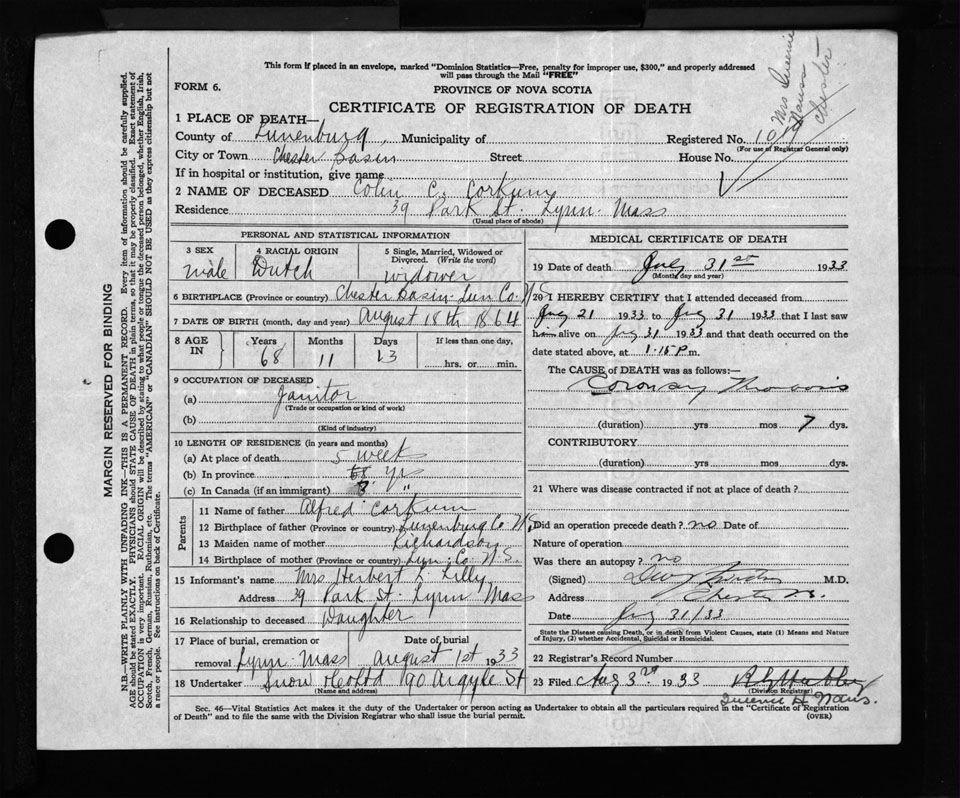 This form if placed in an envelope, marked "Dominion Statistics—Free, penalty for improper use, $300," and properly addressed
will pass through the Mail "FREE"
FORM 6.
PROVINCE OF NOVA SCOTIA
CERTIFICATE OF REGISTRATION OF DEATH
Mrs
Chester
1 PLACE OF DEATH—
County of Lunenburg, Municipality of
Registered No.
(For use of Registrar General only)
City or Town Chester Basin Street House No.
If in hospital or institution, give name
2 NAME OF DECEASED Colin C. Corkum
Residence 39 Park St. Lynn. Mass
(Usual place of abode)
PERSONAL AND STATISTICAL INFORMATION
3 SEX 4 RACIAL ORIGIN 5 Single, Married, Widowed or
Divorced. (Write the word)
male Dutch widower
6 BIRTHPLACE (Province or country) Chester Basin Lun Co. N S
7 DATE OF BIRTH (month, day and year) August 18th 1864
8 AGE IN Years Months Days If less than one day,
68 11 13 hrs. or min.
9 OCCUPATION OF DECEASED
(a) Janitor
(Trade or occupation or kind of work)
(b)
(Kind of industry)
10 LENGTH OF RESIDENCE (in years and months)
(a) At place of death 5 weeks
(b) In province yrs
(c) In Canada (if an immigrant) "
Parents
11 Name of father Alfred Corkum
12 Birthplace of father (Province or country) Lunenburg Co N S
13 Maiden name of mother Richardson
14 Birthplace of mother (Province or country) Lun. Co N. S.
15 Informant's name Mrs Herbert L Lilly
Address 39 Park St. Lynn Mass
16 Relationship to deceased Daughter
17 Place of burial, cremation or Date of burial
removal Lynn Mass August 1st 1933
18 Undertaker Snow 90 Argyle St
(Name and address)
MEDICAL CERTIFICATE OF DEATH
19 Date of death July 31st 1933
(Month, day and year)
20 I HEREBY CERTIFY that I attended deceased from
July 21 1933 to July 31 1933 that I last saw
him alive on July 31 1933 and that death occurred on
the date stated above, at 1.15 P.m.
The CAUSE of DEATH was as follows:—
Coronary Thrombosis
(duration) yrs mos 7 dys.
CONTRIBUTORY
(duration) yrs. mos. dys.
21 Where was disease contracted if not at place of death?
Did an operation precede death? no Date of
Nature of operation
Was there an autopsy? no
(Signed) M.D.
Address Chester N.S.
Date July 31/33
State the Disease causing Death, or in death from Violent Causes, state (1) Means and Nature
of Injury, (2) whether Accidental, Suicidal or Homicidal.
22 Registrar's Record Number
23 Filed Aug 3rd 1933
(Division Registrar)
Sec. 46—Vital Statistics Act makes it the duty of the Undertaker or person acting as Undertaker to obtain all the particulars required in the "Certificate of Registration
of Death" and to file the same with the Division Registrar who shall issue the burial permit.
(OVER)
MARGIN RESERVED FOR BINDING
N.B.—WRITE PLAINLY WITH UNFADING INK—THIS IS A PERMANENT RECORD. Every item of information should be carefully supplied.
AGE should be stated EXACTLY. PHYSICIANS should STATE CAUSE OF DEATH in plain terms, so that it may be properly classified. Exact statement of
OCCUPATION is very important. RACIAL ORIGIN will be described by stating to what people or tongue the deceased person belonged, whether English, Irish,
Scotch, French, German, Russian, Ruthenian, etc. The terms "AMERICAN" or "CANADIAN" SHOULD NOT BE USED as they express citizenship but not
a race or people. See instructions on back of Certificate.